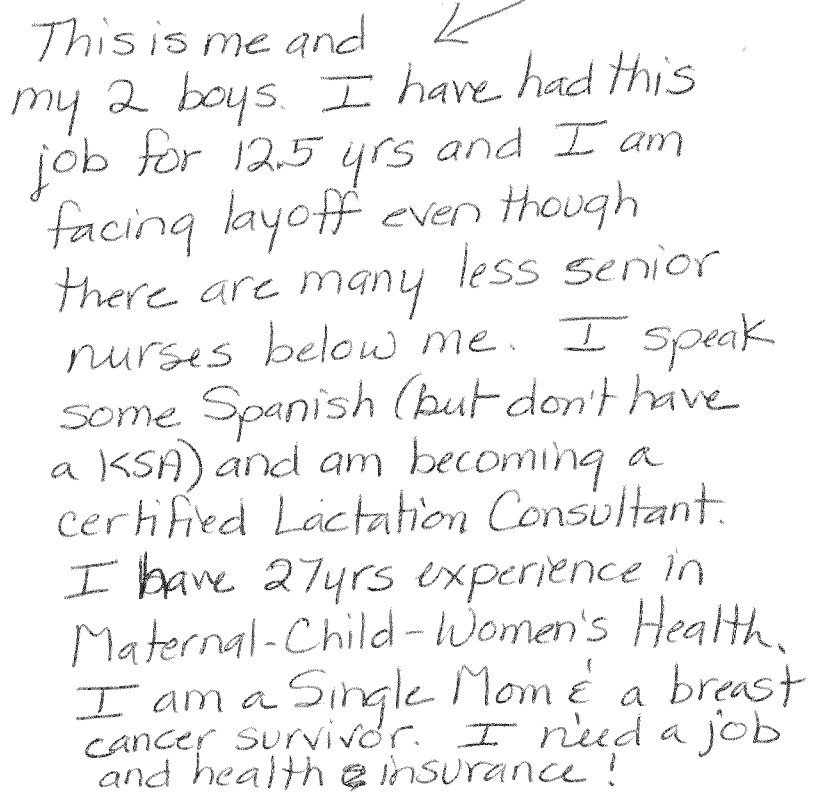 This is me and
my 2 boys. I have had this
job for 12.5 yrs and I am
facing layoff even though
there are many less senior
nurses below me. I speak
some Spanish (but don't have
a KSA) and am becoming a
certified Lactation Consultant.
I have 27yrs experience in
Maternal-Child-Women's Health.
I am a Single Mom & a breast
cancer survivor. I need a job
and health insurance!